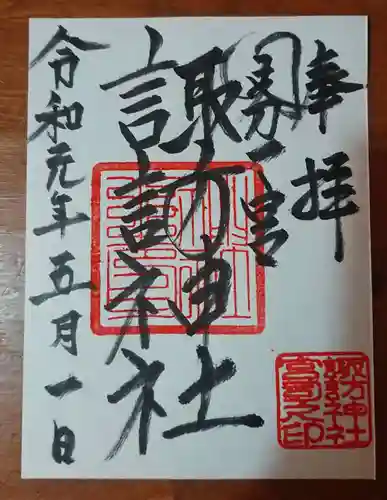 奉拝
一宮
諏訪神社
令和元年五月一日
諏訪神社
宮司之印